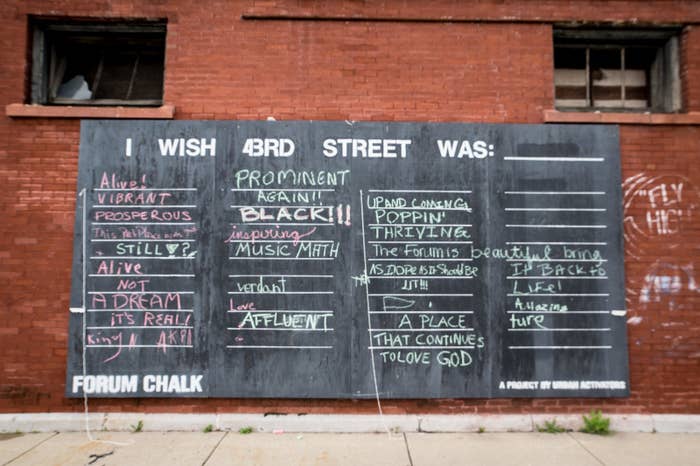 I WISH 43RD STREET WAS:
Alive!
VIBRANT
PROSPEROUS
STILL ?
Alive
NOT
A DREAM
it's REAL!
King
PROMINENT
AGAIN!!
BLACK!!!
inspiring
MUSIC/MATH
verdant
Love
AFFLUENT
UP AND COMING
POPPIN'
THRIVING
The Forum is beautiful bring
AS DOPE AS IT Should Be
LIT!!!
A PLACE
THAT CONTINUES
TO LOVE GOD
IT BACK to
Life!
Amazing
ture
FORUM CHALK
A PROJECT BY URBAN ACTIVATORS
"FLY